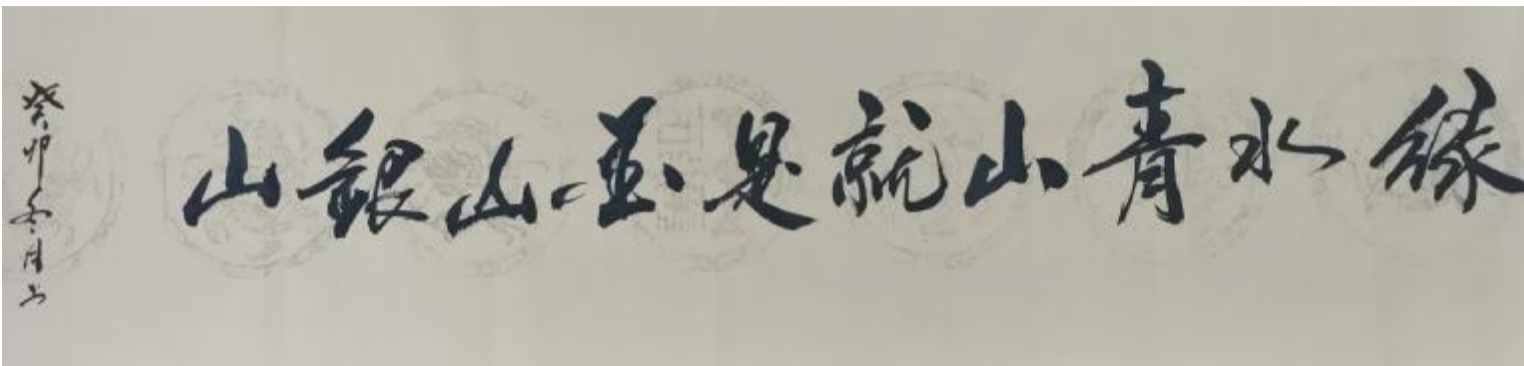 綠水青山就是金山銀山
癸卯冬月